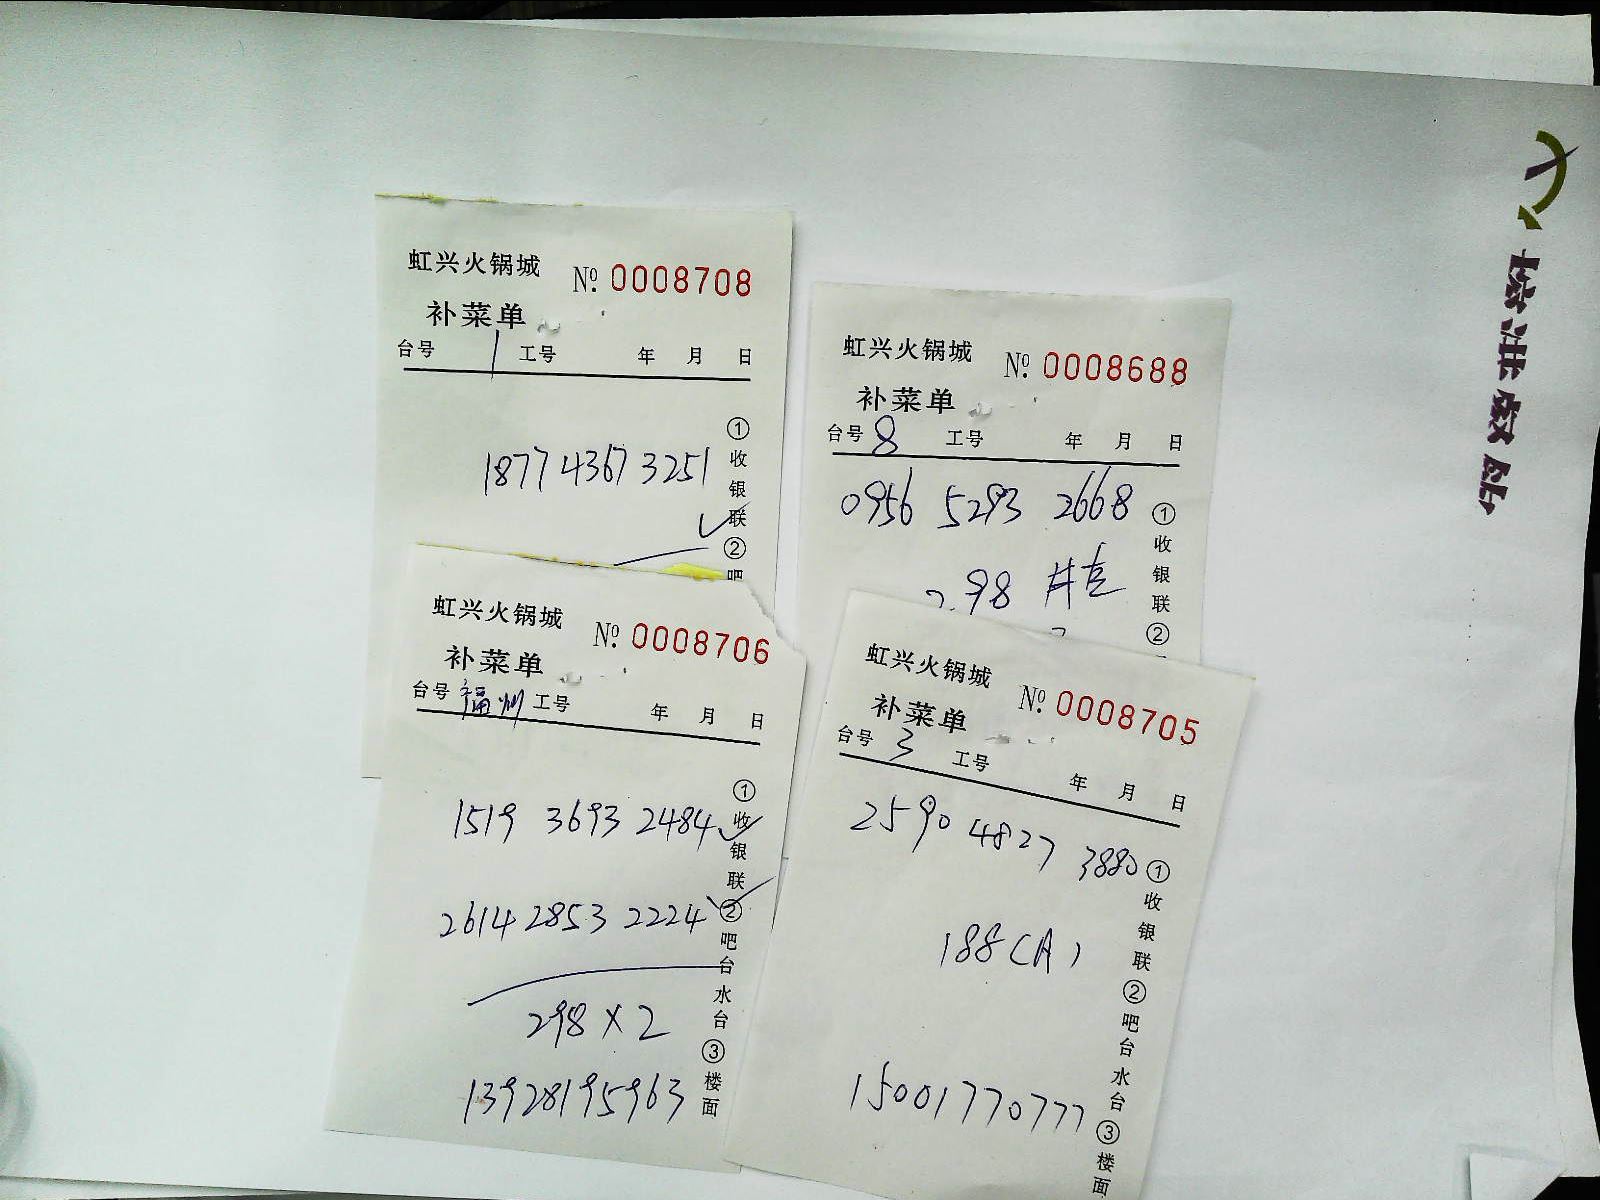 虹兴火锅城 № 0008708
补菜单
台号 1 工号 年 月 日
1877 4367 3251
①收银联②吧
虹兴火锅城 № 0008688
补菜单
台号 8 工号 年 月 日
0956 5293 2668
298
①收银联②
虹兴火锅城 № 0008706
补菜单
台号 福州 工号 年 月 日
1519 3693 2484
2614 2853 2224
298×2
13928195963
①收银联②吧台水台③楼面
虹兴火锅城 № 0008705
补菜单
台号 3 工号 年 月 日
2590 4827 3880
188(A)
15001770777
①收银联②吧台水台③楼面